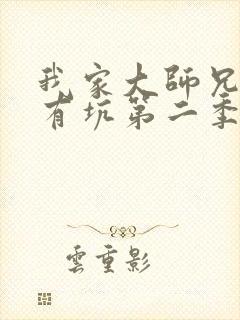 我家大師兄
有坑第二季
雲重影